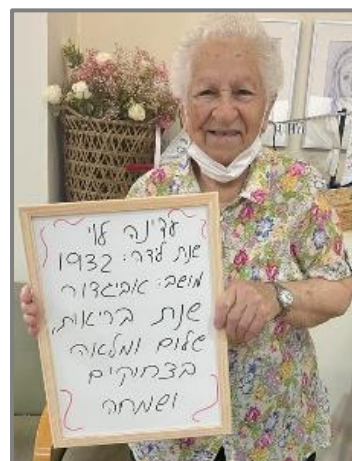 עדינה לוי
שנת לדה: 1932
מושב: אביגדור
שנת בריאות,
שלום ומלאה
בצחוקים
ושמחה